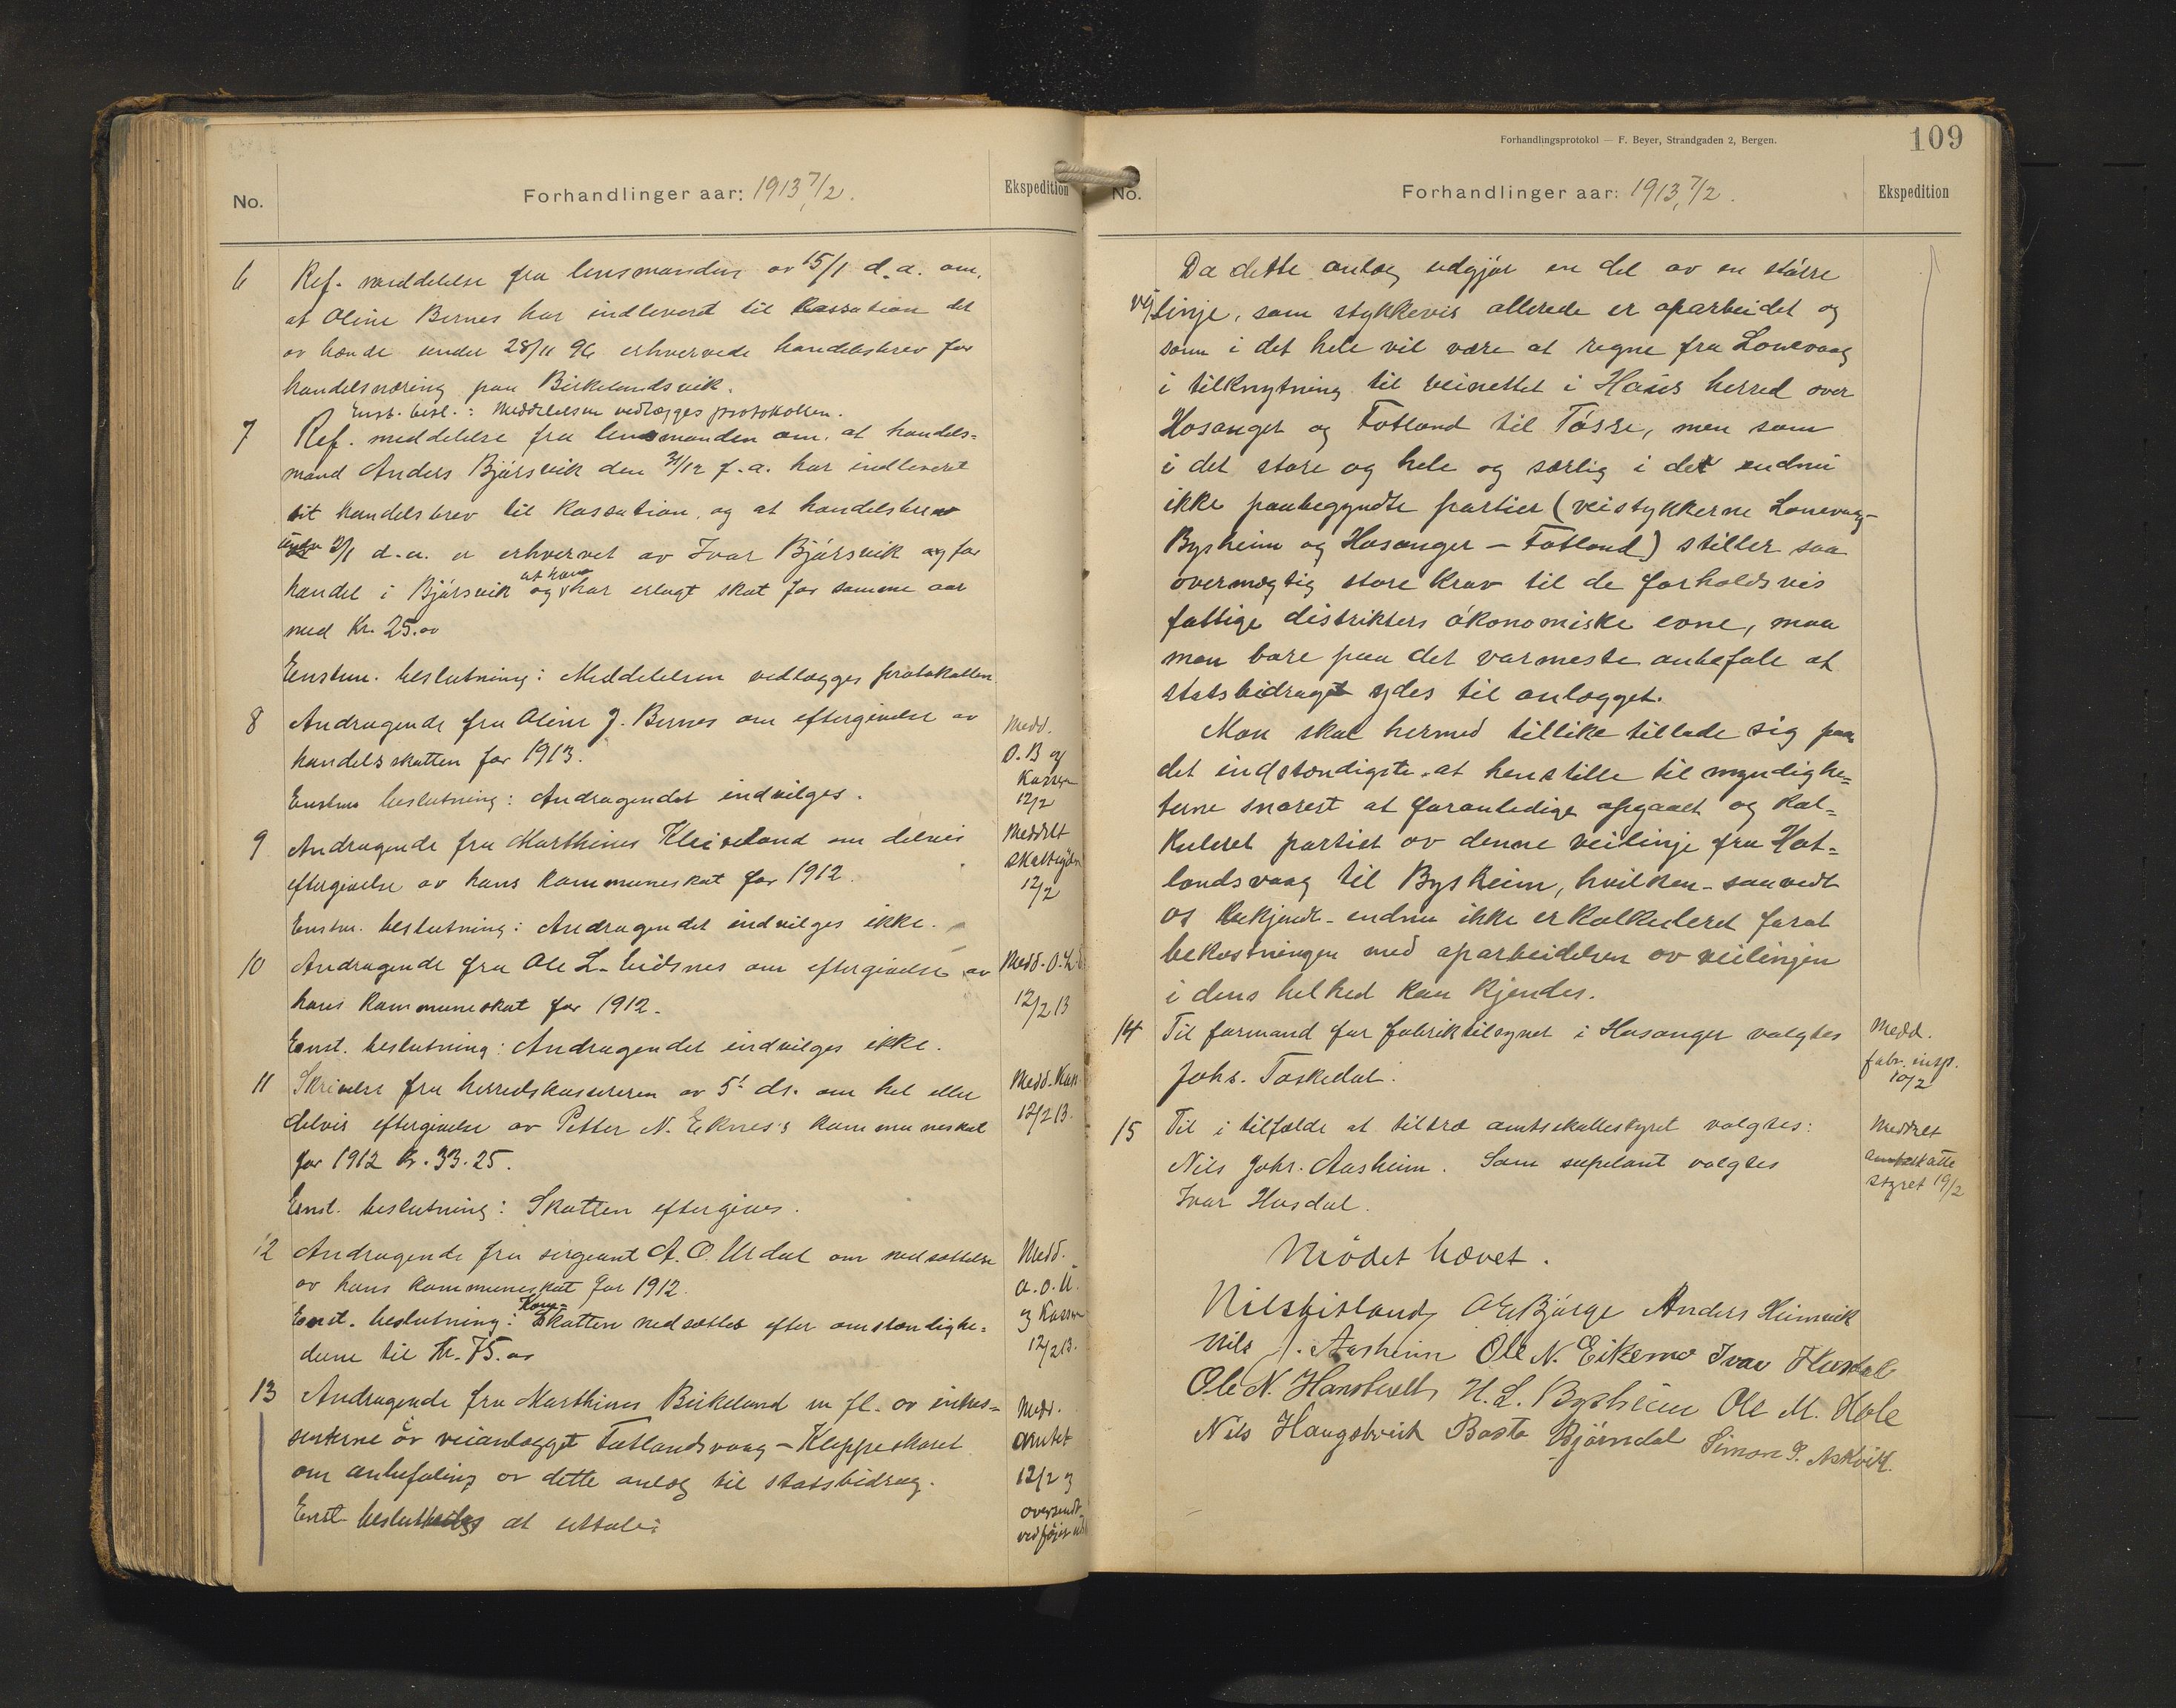 No.
Forhandlinger aar: 1913 7/2.
Ekspedition
6 Ref. meddelelse fra lensmanden av 15/1 d.a. om,
at Oline Bernes har indleveret til kassation det
av hende under 28/11 96 erhvervede handelsbrev for
handelsnæring paa Birkelandsvik.
Enst. besl.: Meddelelsen vedlægges protokollen.
7 Ref. meddelelse fra lensmanden om, at handels=
mand Anders Bjørsvik den 31/12 f.a. har indleveret
sit handelsbrev til kassation, og at handelsbrev
under 2/1 d.a. er erhvervet av Ivar Bjørsvik for
handel i Bjørsvik og at have erlagt skat for samme aar
med Kr. 25.00
Enstem. beslutning: Meddelelsen vedlægges protokollen.
8 Andragende fra Oline J. Bernes om eftergivelse av
handelsskatten for 1913.
Enstem beslutning: Andragendet indvilges.
Medd.
O.B og
Kassen
12/2
9 Andragende fra Marthinus Kleiveland om delvis
eftergivelse av hans kommuneskat for 1912.
Enstm. beslutning: Andragendet indvilges ikke.
Meddelt
12/2
10 Andragende fra Ole L. Eidsnes om eftergivelse av
hans kommuneskat for 1912.
Enst. beslutning: Andragendet indvilges ikke.
Medd. O.L.
12/2 13
11 Skrivelse fra herredskassereren av 5t ds. om hel eller
delvis eftergivelse av Petter N. Eknes's kommuneskat
for 1912 kr. 33.25.
Enst. beslutning: Skatten eftergives.
Medd. Kas.
12/2 13.
12 Andragende fra sergeant A. O. Urdal om nedsættelse
av hans kommuneskat for 1912.
Enst. beslutning: Kom-Skatten nedsættes efter omstændighe=
dene til kr. 75.00
Medd.
A.O.U.
og Kassen
12/2 13.
13 Andragende fra Marthinus Birkeland m fl. av interes=
senterne av veianlægget Fætlandsvaag - Kleppeskaret
om anbefaling av dette anlæg til statsbidrag.
Enst. besluttedes at uttale:
Medd.
amtet
12/2 og
oversendt
Forhandlingsprotokol — F. Beyer, Strandgaden 2, Bergen.
109
No.
Forhandlinger aar: 1913, 7/2.
Ekspedition
Da dette anlæg udgjør en del av en større
veilinje, som stykkevis allerede er oparbeidet og
som i det hele vil være at regne fra Lonevaag
i tilknytning til veinettet i Haus herred over
Hosanger og Fotland til Tøsse, men som
i det store og hele og særlig i det endnu
ikke paabegyndte partier (veistykkerne Lonevaag-
Bysheim og Hosanger - Fotland) stiller saa
overmægtig store krav til de forholdsvis
fattige distrikters økonomiske evne, maa
man bare paa det varmeste anbefale at
statsbidraget ydes til anlægget.
Man skal hermed tillike tillade sig paa
det indstændigste at henstille til myndighe=
terne snarest at foranledige opgaaet og kal=
kuleret partiet av denne veilinje fra Hat=
landsvaag til Bysheim, hvilken - saavidt
os bekjendt - endnu ikke er kalkuleret forat
bekostningen med oparbeidelsen av veilinjen
i dens helhed kan kjendes.
14 Til formand for fabriktilsynet i Hosanger valgtes
Johs. Toskedal.
Medd.
fabr. insp.
10/2
15 Til i tilfælde at tiltræ amtsskattestyret valgtes:
Nils Johs. Aasheim. Som suppleant valgtes
Ivar Husdal.
Meddelt
amtsskatte
styret 19/2
Mødet hævet.
Nils Eisland O E Bjørge Anders Heimvik
Nils J. Aasheim Ole N. Eikemo Ivar Husdal
Ole N. Hanstveit H. L. Bysheim Ole M. Hole
Nils Haugstvedt Basto Bjørndal Simon P. Askvik